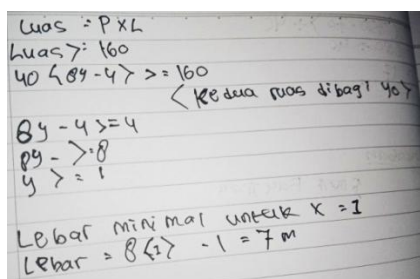 Luas = P x L
Luas >= 160
40 (8y-4) >= 160
(Kedua ruas dibagi 40)
8y - 4 >= 4
8y - >= 8
y >= 1
Lebar minimal untuk x = 1
Lebar = 8(1) - 1 = 7 m